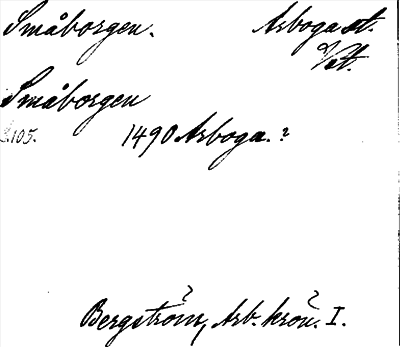 Småborgen. Arboga st.
Vstt.
Småborgen
s. 105. 1490 Arboga. ?
Bergström, Arb. krön. I.